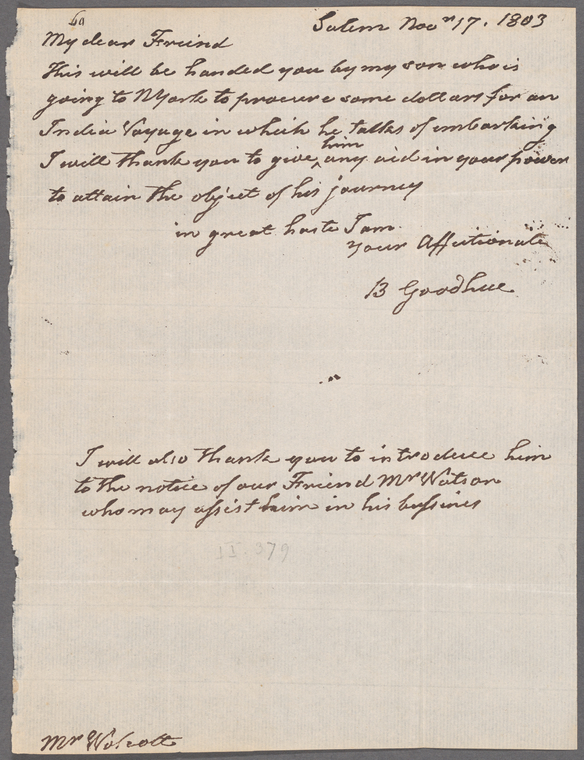 Salem Novr 17. 1803
My dear Freind
This will be handed you by my son who is
going to NYork to procure some dollars for an
India Voyage in which he talks of imbarking
I will thank you to give him any aid in your power
to attain the object of his journey
in great haste I am
your Affectionate
B Goodhue
I will also thank you to introduce him
to the notice of our Friend Mr Watson
who may assist him in his bussines
II. 379
Mr Wolcott